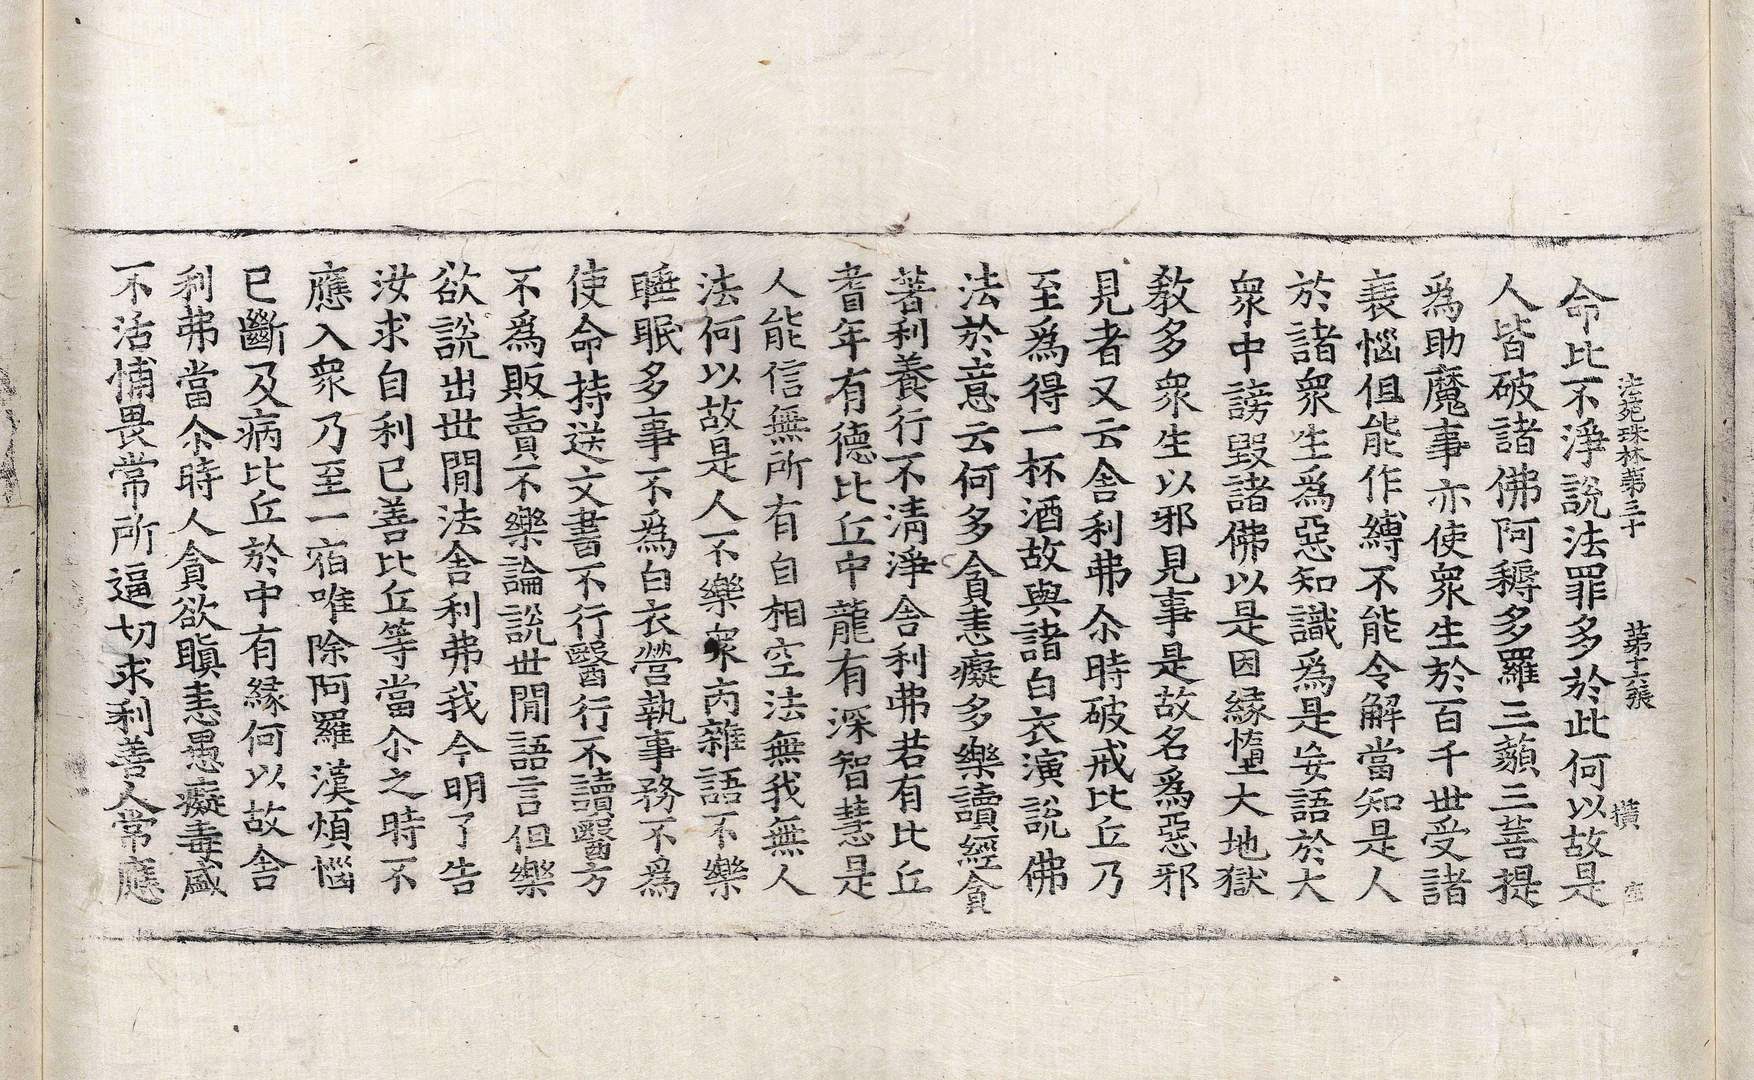 法苑珠林第三十 第十六張 橫
命比不淨說法罪多於此何以故是
人皆破諸佛阿耨多羅三藐三菩提
為助魔事亦使衆生於百千世受諸
衰惱但能作縛不能令解當知是人
於諸衆生為惡知識為是妄語於大
衆中謗毀諸佛以是因緣墮大地獄
教多衆生以邪見事是故名為惡邪
見者又云舍利弗尒時破戒比丘乃
至為得一杯酒故與諸白衣演說佛
法於意云何多貪恚癡多樂讀經貪
著利養行不清淨舍利弗若有比丘
耆年有德比丘中龍有深智慧是
人能信無所有自相空法無我無人
法何以故是人不樂衆丙雜語不樂
睡眠多事不為白衣營執事務不為
使命持送文書不行醫行不讀醫方
不為販賣不樂論說世閒語言但樂
欲說出世閒法舍利弗我今明了告
汝求自利已善比丘等當尒之時不
應入衆乃至一宿唯除阿羅漢煩惱
已斷及病比丘於中有緣何以故舍
利弗當尒時人貪欲瞋恚愚癡毒盛
不活怖畏常所逼切求利善人常應